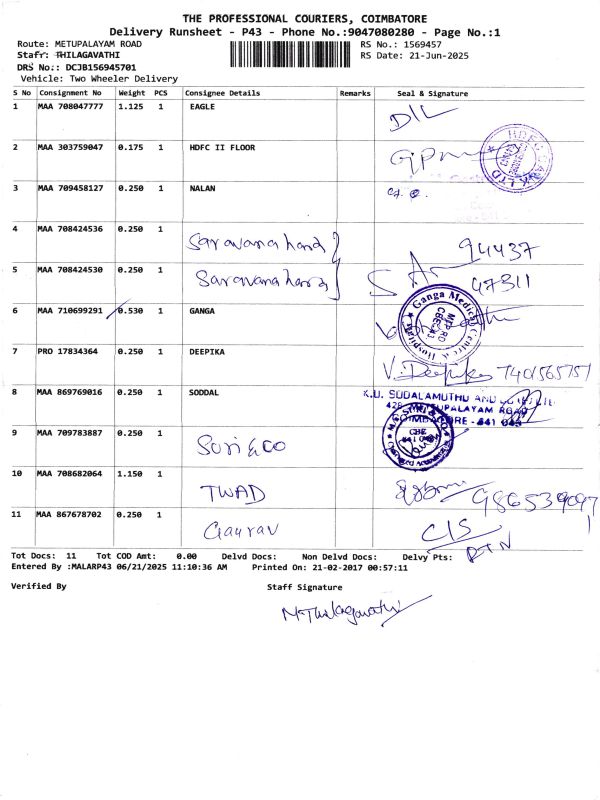 THE PROFESSIONAL COURIERS, COIMBATORE
Delivery Runsheet - P43 - Phone No.:9047080280 - Page No.:1
Route: METUPALAYAM ROAD RS No.: 1569457
Staff: THILAGAVATHI RS Date: 21-Jun-2025
DRS No.: DCJB156945701
Vehicle: Two Wheeler Delivery
S No Consignment No Weight PCS Consignee Details Remarks Seal & Signature
1 MAA 708047777 1.125 1 EAGLE D/L
2 MAA 303759047 0.175 1 HDFC II FLOOR
HDFC BANK LTD
3 MAA 709458127 0.250 1 NALAN
4 MAA 708424536 0.250 1 Saravana hand 94437
5 MAA 708424530 0.250 1 Saravana hand 47311
6 MAA 710699291 0.530 1 GANGA
Ganga Medical Centre & Hospital
MTP RD
CBE-43
7 PRO 17834364 0.250 1 DEEPIKA V. Deepika 7401565757
8 MAA 869769016 0.250 1 SODDAL
K.U. SODALAMUTHU AND
ROAD
- 641 043
9 MAA 709783887 0.250 1 Suri & co
CBE
10 MAA 708682064 1.150 1 TWAD 9865390971
11 MAA 867678702 0.250 1 Gaurav C/S
RTN
Tot Docs: 11 Tot COD Amt: 0.00 Delvd Docs: Non Delvd Docs: Delvy Pts:
Entered By :MALARP43 06/21/2025 11:10:36 AM Printed On: 21-02-2017 00:57:11
Verified By Staff Signature
M.Thilagavathi